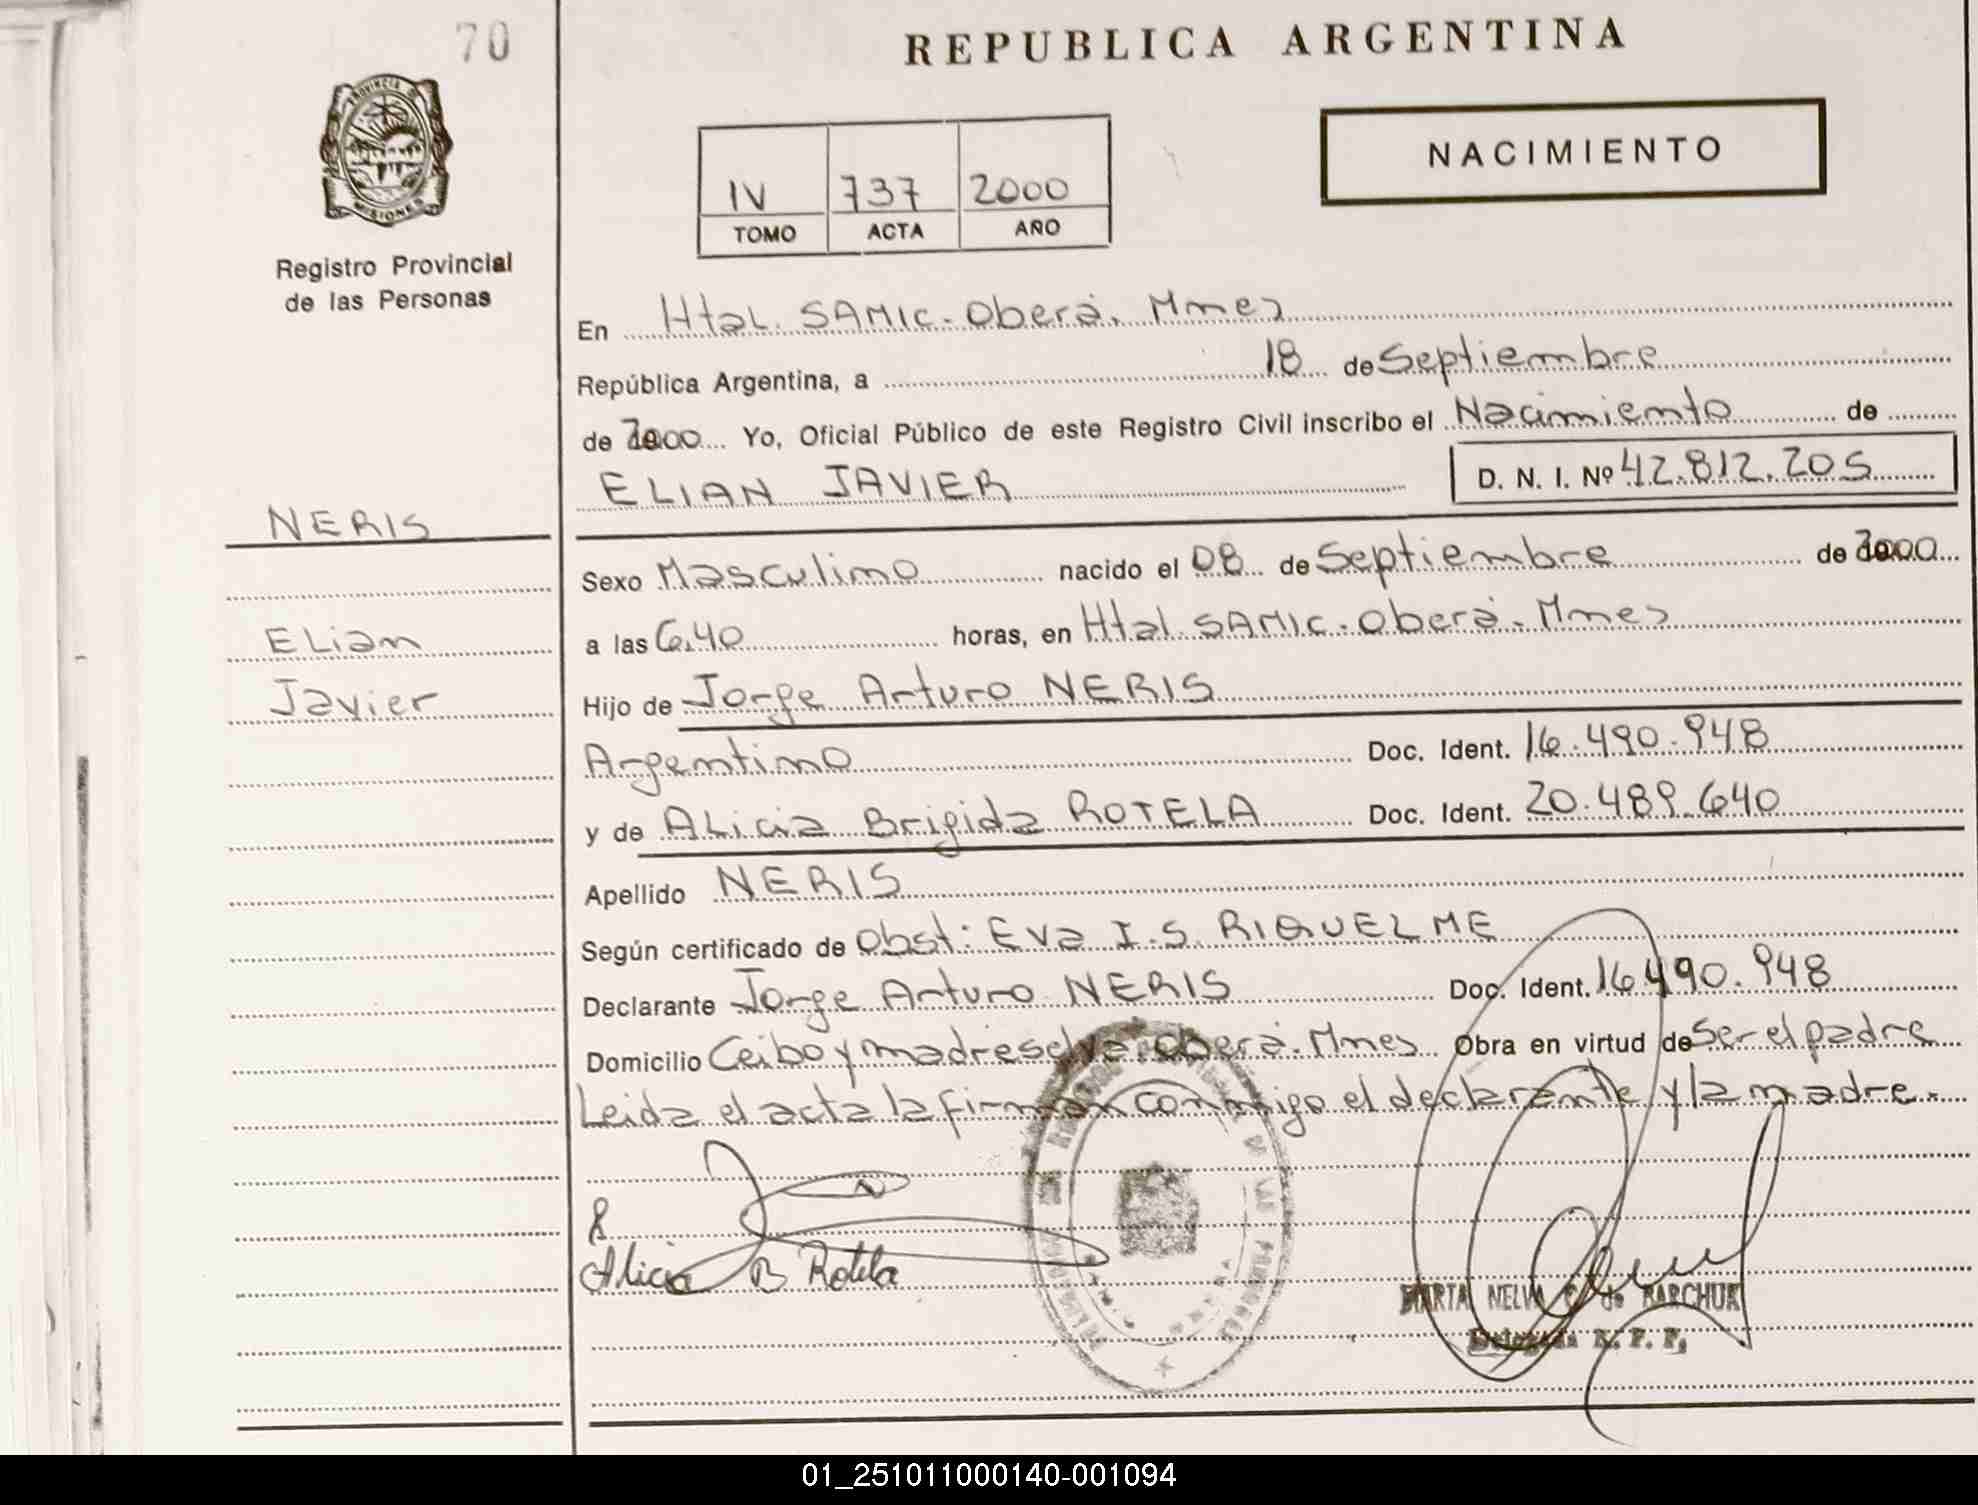 70
REPUBLICA ARGENTINA
PROVINCIA DE
MISIONES
Registro Provincial
de las Personas
NACIMIENTO
IV 737 2000
TOMO ACTA AÑO
En Htal. SAMIC. Oberá. Mnes
República Argentina, a 18 de Septiembre
de 2000 Yo, Oficial Público de este Registro Civil inscribo el Nacimiento de
ELIAN JAVIER D. N. I. Nº 42.812.205
NERIS
Elian
Javier
Sexo Masculino nacido el 08 de Septiembre de 2000
a las 6,40 horas, en Htal. SAMIC. Oberá. Mnes
Hijo de Jorge Arturo NERIS
Argentino Doc. Ident. 16.490.948
y de Alicia Brigida ROTELA Doc. Ident. 20.489.640
Apellido NERIS
Según certificado de Obst: Eva I.S. RIQUELME
Declarante Jorge Arturo NERIS Doc. Ident. 16.490.948
Domicilio Ceibo y madreselva. Oberá. Mnes Obra en virtud de Ser el padre
Leida el acta la firman conmigo el declarante y la madre.
Alicia B Rotela
MARTA NELVA de BARCHUK
Delegada R. P. P.
01_251011000140-001094